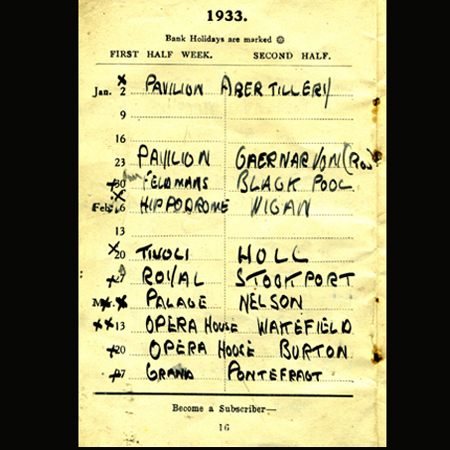 1933.
Bank Holidays are marked
FIRST HALF WEEK. SECOND HALF.
Jan. 2 PAVILION ABERTILLERY
9
16
23 PAVILION CAERNARVON (ROS)
30 FELDMANS BLACK POOL
Feb. 6 HIPPODROME WIGAN
13
20 TIVOLI HULL
27 ROYAL STOCKPORT
PALACE NELSON
13 OPERA HOUSE WAKEFIELD
20 OPERA HOUSE BURTON
27 GRAND PONTEFRACT
Become a Subscriber—
16